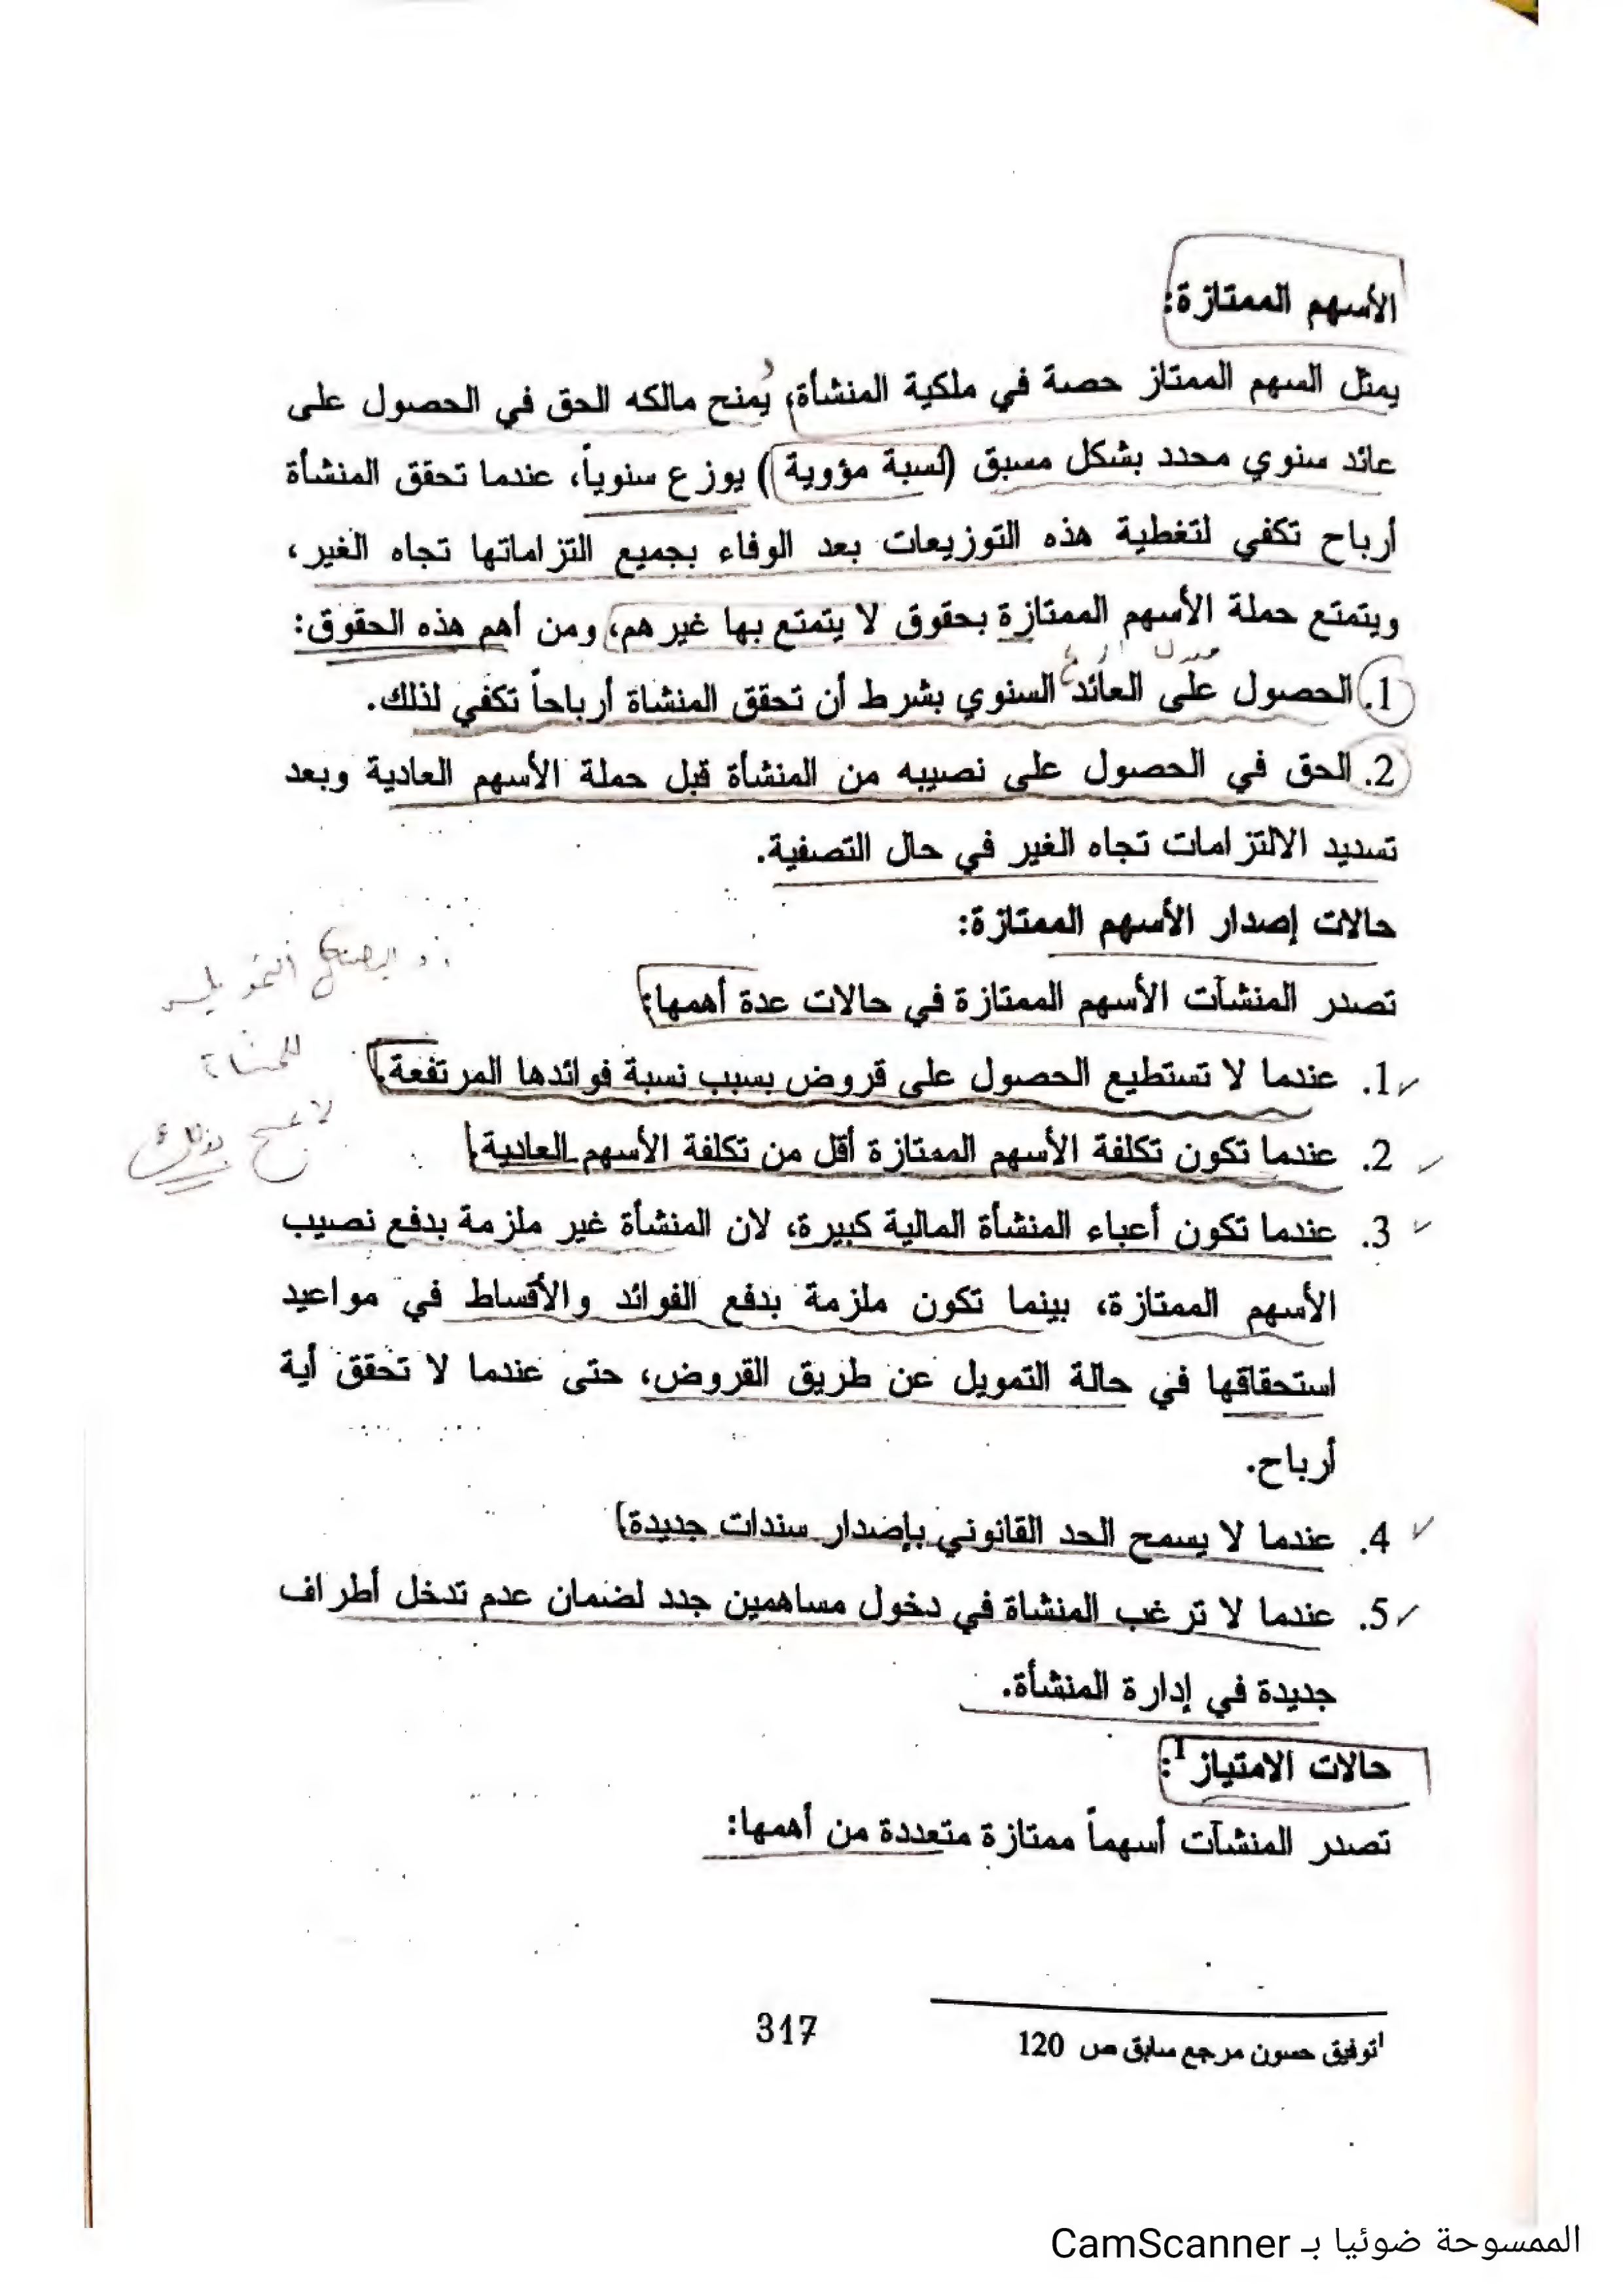 الأسهم الممتازة:
يمثل السهم الممتاز حصة في ملكية المنشأة، يمنح مالكه الحق في الحصول على
عائد سنوي محدد بشكل مسبق (نسبة مؤوية) يوزع سنوياً، عندما تحقق المنشأة
أرباح تكفي لتغطية هذه التوزيعات بعد الوفاء بجميع التزاماتها تجاه الغير،
ويتمتع حملة الأسهم الممتازة بحقوق لا يتمتع بها غيرهم، ومن أهم هذه الحقوق:
1. الحصول على العائد السنوي بشرط أن تحقق المنشاة أرباحاً تكفي لذلك.
2. الحق في الحصول على نصيبه من المنشأة قبل حملة الأسهم العادية وبعد
تسديد الالتزامات تجاه الغير في حال التصفية.
حالات إصدار الأسهم الممتازة:
تصدر المنشآت الأسهم الممتازة في حالات عدة أهمها:
1. عندما لا تستطيع الحصول على قروض بسبب نسبة فوائدها المرتفعة.
2. عندما تكون تكلفة الأسهم الممتازة أقل من تكلفة الأسهم العادية.
3. عندما تكون أعباء المنشأة المالية كبيرة، لان المنشأة غير ملزمة بدفع نصيب
الأسهم الممتازة، بينما تكون ملزمة بدفع الفوائد والأقساط في مواعيد
استحقاقها في حالة التمويل عن طريق القروض، حتى عندما لا تحقق أية
أرباح.
4. عندما لا يسمح الحد القانوني بإصدار سندات جديدة.
5. عندما لا ترغب المنشاة في دخول مساهمين جدد لضمان عدم تدخل أطراف
جديدة في إدارة المنشأة.
حالات الامتياز¹:
تصدر المنشآت أسهماً ممتازة متعددة من أهمها:
¹توفيق حسون مرجع سابق ص 120
317
الممسوحة ضوئيا بـ CamScanner